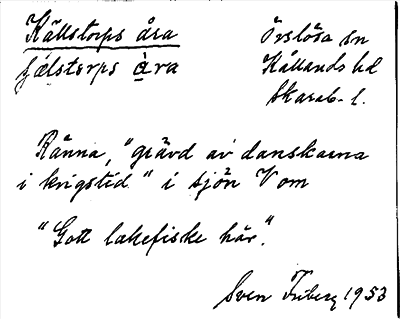 Källstorps åra
sjælstorps åra
Örslösa sn
Kållands hd
Skarab. l.
Ränna, "grävd av danskarna
i krigstid" i sjön V om
"Gott lakefiske här".
Sven Friberg 1953